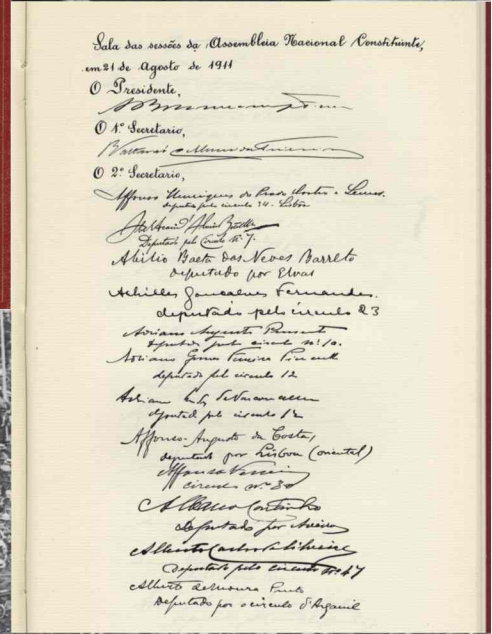 Sala das sessões da Assembleia Nacional Constituinte,
em 21 de Agosto de 1911
O Presidente,
O 1.º Secretario,
O 2.º Secretario,
Affonso Henriques do Prado Castro e Lemos.
deputado pelo circulo 24. Lisboa
Deputado pelo Circulo Nº 7.
Abilio Baeta das Neves Barreto
deputado por Elvas
Achilles Gonçalves Fernandes.
deputado pelo circulo 23
Adriano Augusto Pimenta
deputado pelo circulo nº 10.
Adriano Gomes Ferreira Pimenta
deputado pelo circulo 12
Adriano
deputado pelo circulo 12
Affonso Augusto da Costa,
deputado por Lisboa (oriental)
Affonso Ferreira
circulo nº 30
Albano Coutinho
Deputado por Aveiro
Alberto
Deputado pelo circulo Nº 47
Alberto de Moura Pinto
Deputado por o circulo d'Arganil